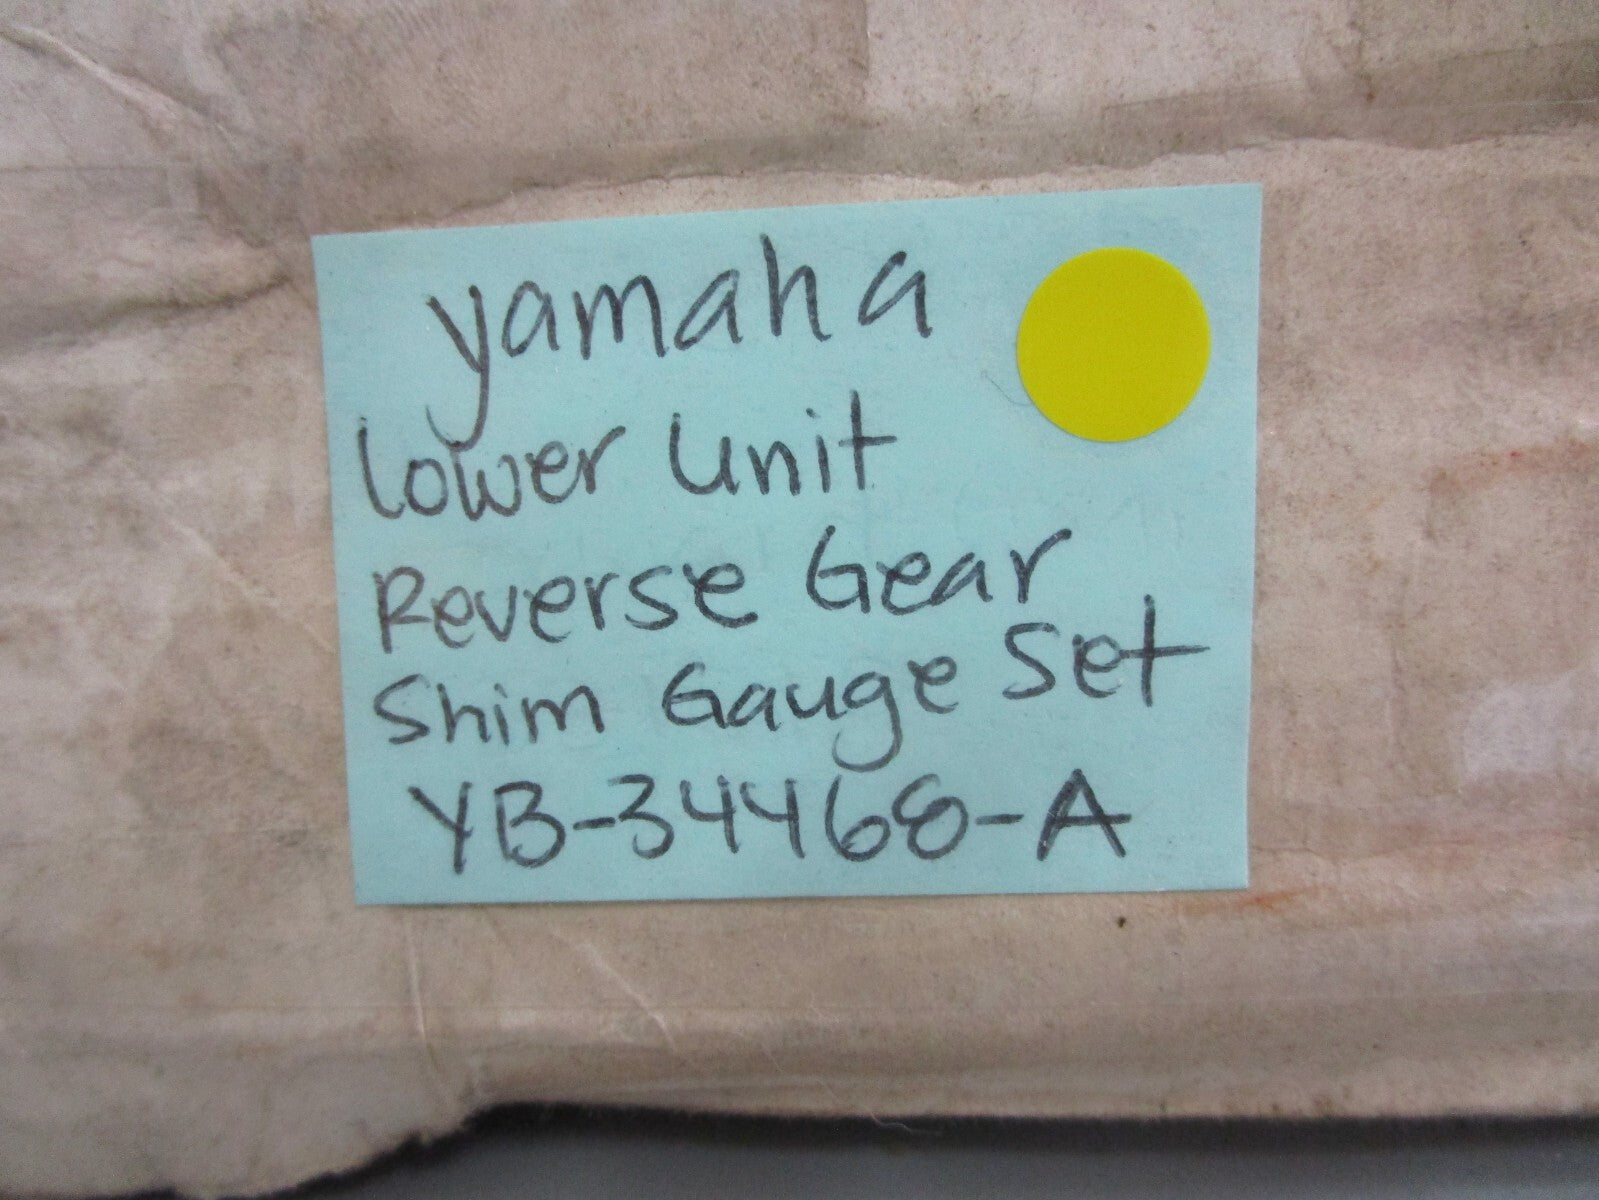 yamaha
Lower Unit
Reverse Gear
Shim Gauge Set
YB-34468-A